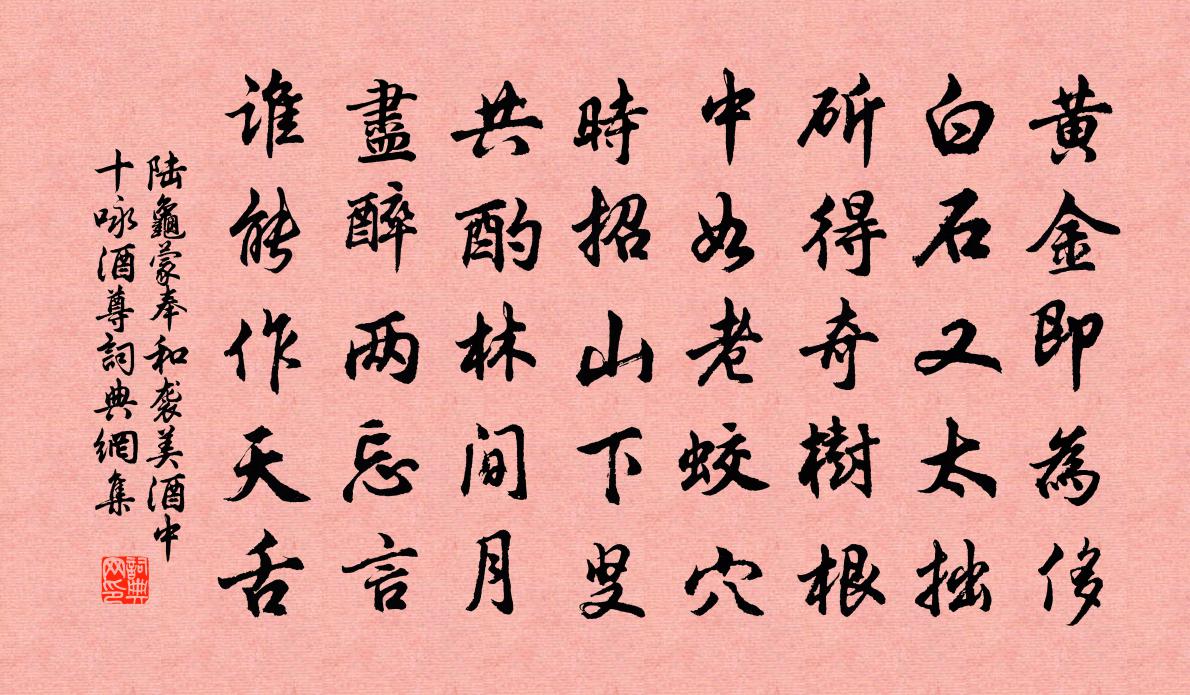 黄金即為侈
白石又太拙
斫得奇樹根
中如老蛟穴
時招山下叟
共酌林間月
盡醉两忘言
谁能作天舌
陆龜蒙奉和袭美酒中
十咏酒尊詞典網集
詞典
网印